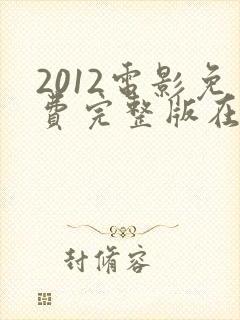 2012电影免
费完整版在
封脩容